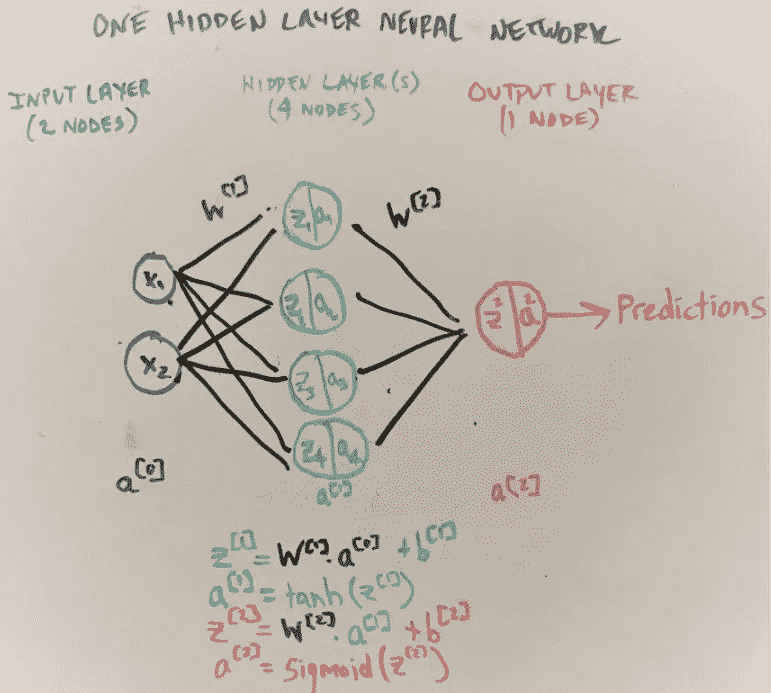 ONE HIDDEN LAYER NEURAL NETWORK
INPUT LAYER
(2 NODES)
HIDDEN LAYER(S)
(4 NODES)
OUTPUT LAYER
(1 NODE)
W[1]
W[2]
x1
x2
z1 a1
a2
z3 a3
z4 a4
z2 a2
Predictions
a[0]
a[1]
a[2]
z[1] = W[1] . a[0] + b[1]
a[1] = tanh(z[1])
z[2] = W[2] . a[1] + b[2]
a[2] = sigmoid(z[2])